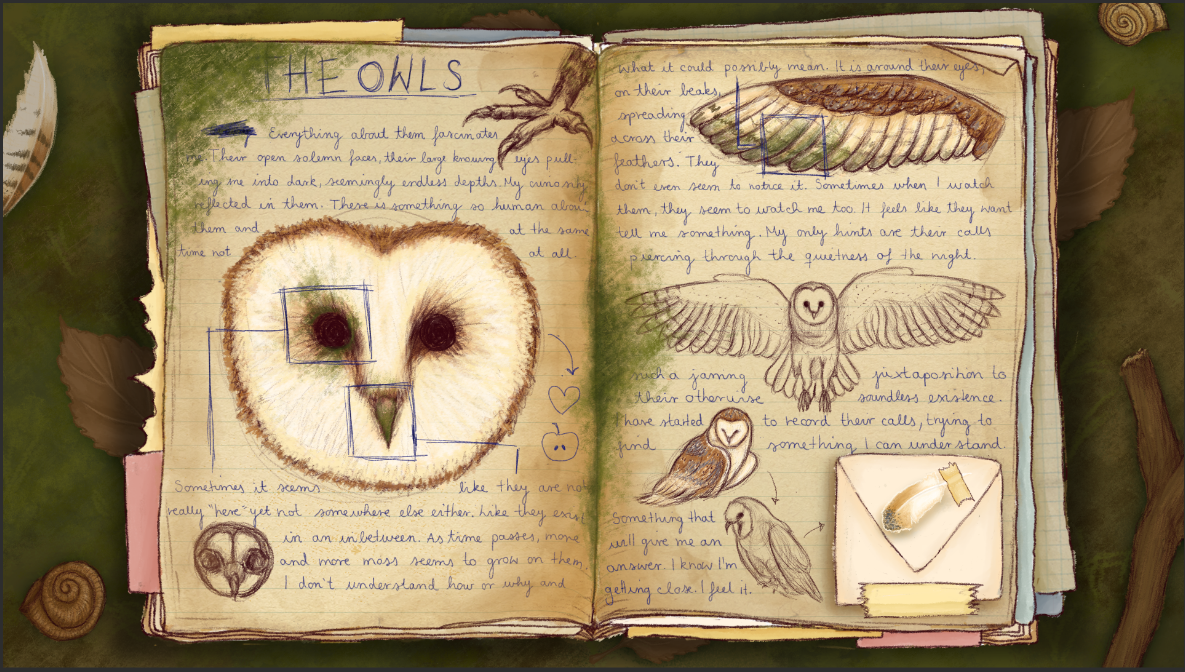 THE OWLS
Everything about them fascinates
me. Their open solemn faces, their large knowing eyes pull-
ing me into dark, seemingly endless depths. My curiosity
reflected in them. There is something so human about
them and at the same
time not at all.
Sometimes it seems like they are not
really "here" yet not somewhere else either. Like they exist
in an inbetween. As time passes, more
and more moss seems to grow on them.
I don't understand how or why and
what it could possibly mean. It is around their eyes,
on their beaks,
spreading
across their
feathers. They
don't even seem to notice it. Sometimes when I watch
them, they seem to watch me too. It feels like they want
tell me something. My only hints are their calls
piercing through the quietness of the night.
such a jarring juxtaposition to
their otherwise soundless existence.
I have started to record their calls, trying to
find something, I can understand.
Something that
will give me an
answer. I know I'm
getting close. I feel it.